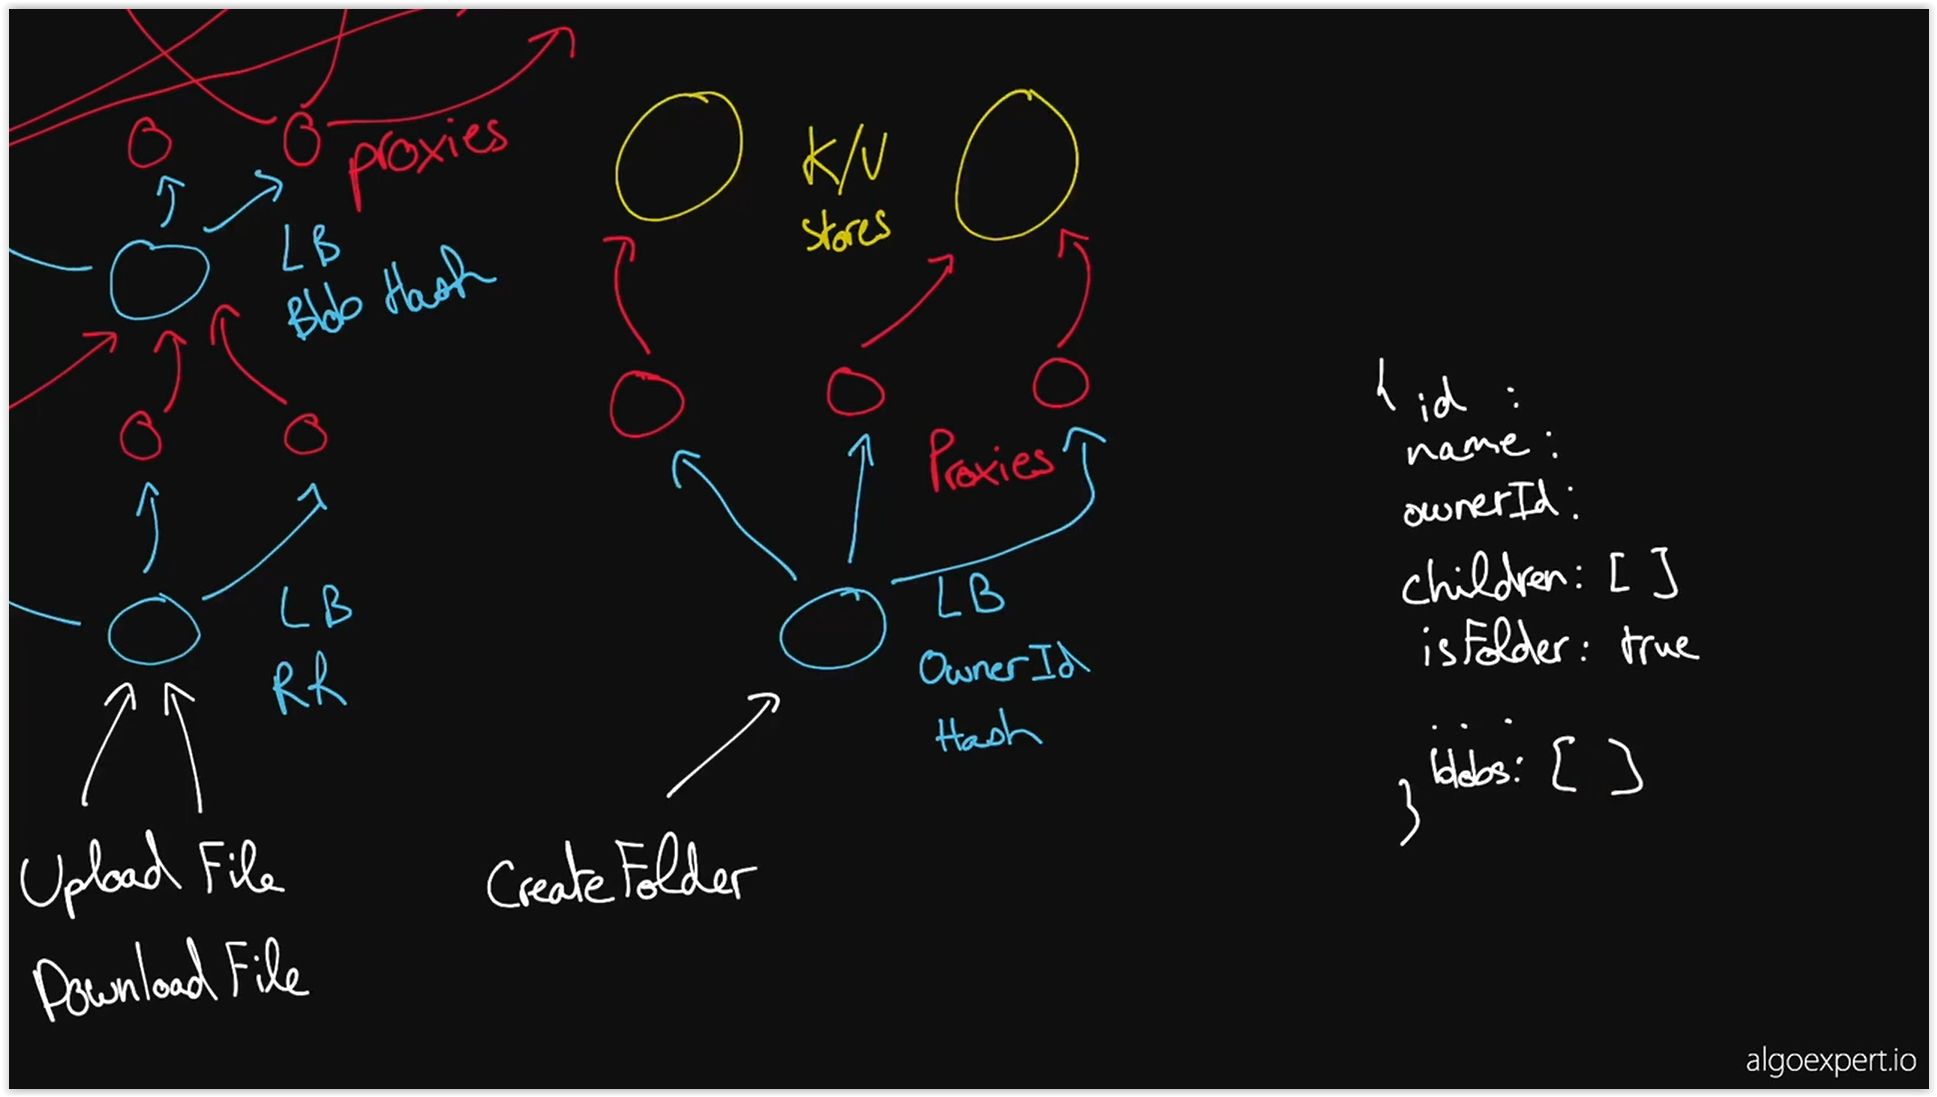 proxies
LB
Blob Hash
LB
RR
Upload File
Download File
K/V
stores
Proxies
LB
OwnerId
Hash
CreateFolder
{ id :
name :
ownerId:
children: [ ]
isFolder: true
. . .
blobs: [ ]
}
algoexpert.io